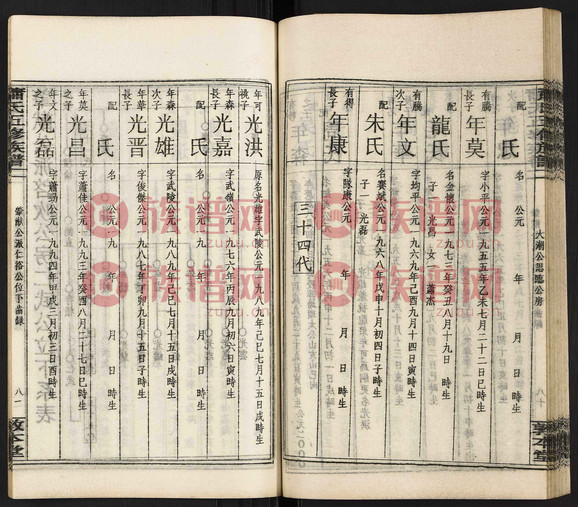 年莫
有騰次子
字小平公元一九五五年乙未七月二十二日巳時生
配
氏
名 公元一九 年 月 日 時生
年文
有騰次子
字均平公元一九六 年 九月十四日寅時生
配
龍氏
名金娥公元一九七三年癸丑八月十九日 時生
子一 光昌 女 蕭杰
年康
有得長子
字隊康公元 年 月 日 時生
配
朱氏
名賽斌公元一九六八年戊申十月初四日子時生
子一 光磊
三十四代
光洪
年可
原名光雄字武陵公元一九八九年己巳七月十五日戌時生
光嘉
年森長子
字武嶺公元一九七六年丙辰九月初六日寅時生
配
氏
名 公元一九 年 月 日 時生
光雄
年森次子
字武陵公元一九八九年己巳七月十五日戌時生
光晋
年華長子
字俊傑公元一九八七年丁卯九月十五日子時生
配
氏
名 公元一九 年 月 日 時生
光昌
年莫之子
字蕭佳公元一九九三年癸酉八月二十七日巳時生
光磊
年文之子
字蕭勁公元一九九四年甲戌三月初三日酉時生
蕭氏五修族譜
大潮公思聰公房
八十
敦本堂
蕭氏五修族譜
八一
敦本堂
族谱网
zupu.cn